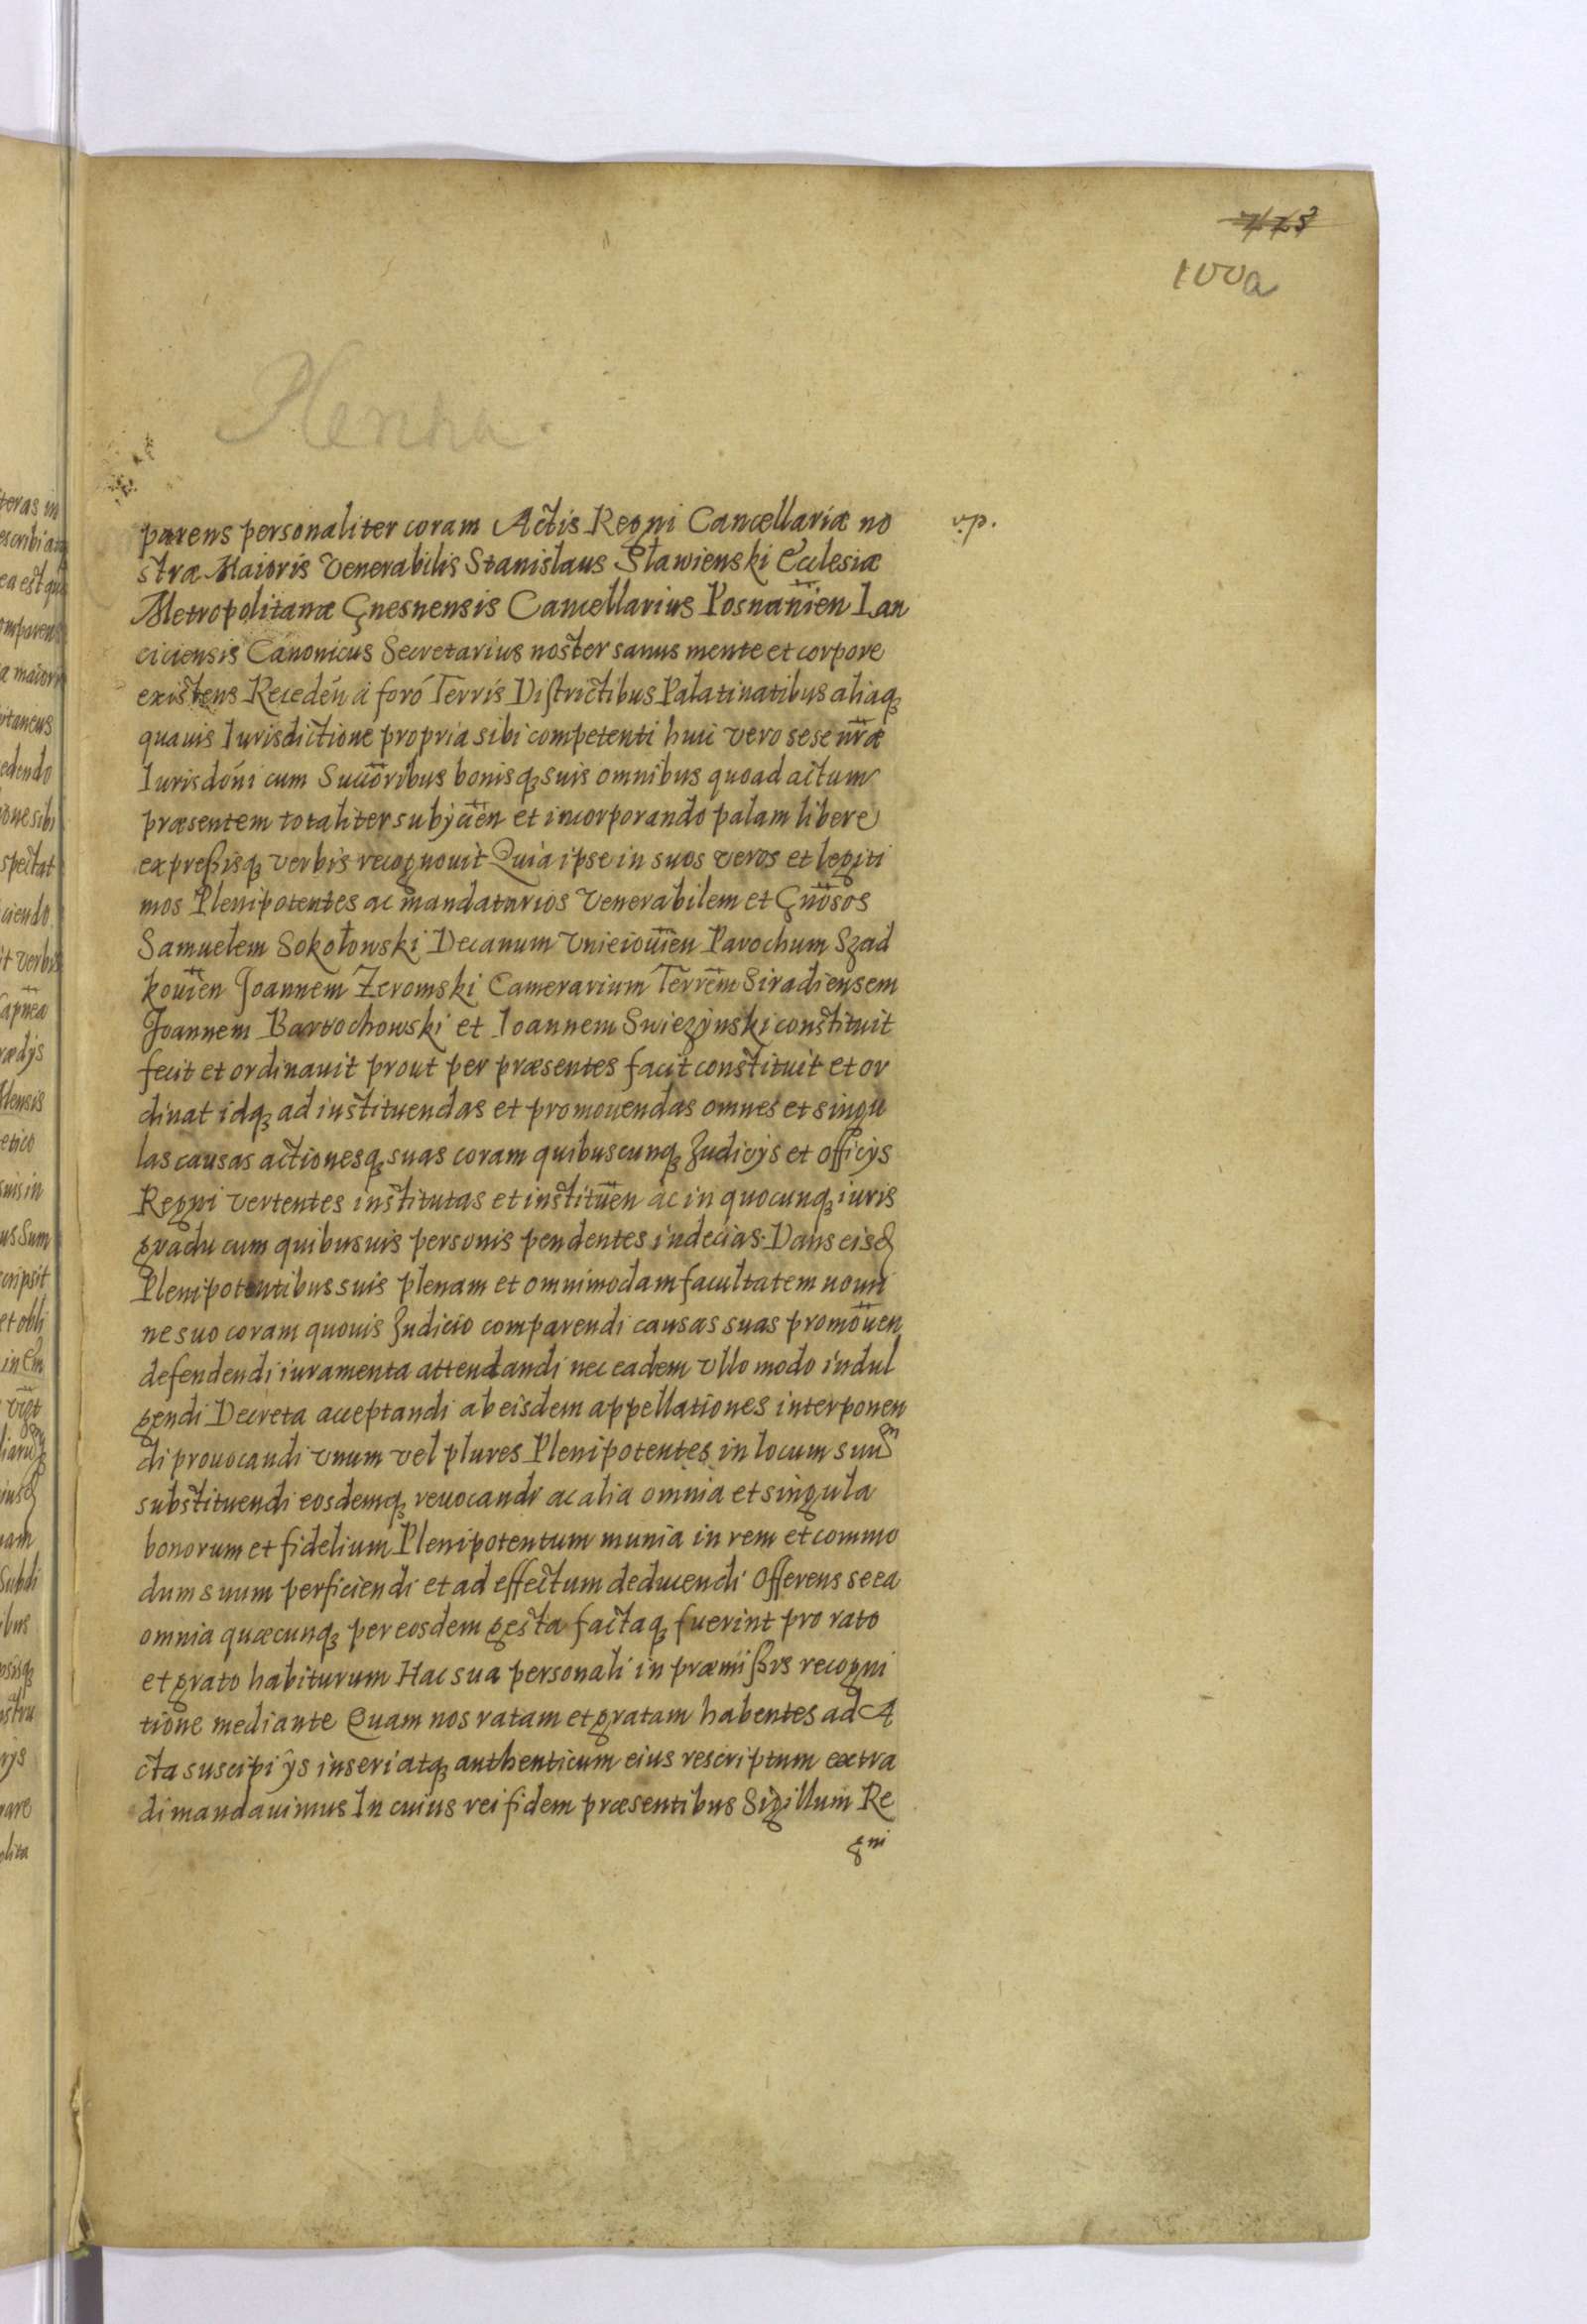 100a
v.p.
parens personaliter coram Actis Regni Cancellariæ no
stræ Maioris Venerabilis Stanislaus Sławienski Ecclesiæ
Metropolitanæ Gnesnensis Cancellarius Posnanien̄ Lan
ciciensis Canonicus Secretarius noster sanus mente et corpore
existens Receden̄ à foró Terris Districtibus Palatinatibus aliaq̨
quauis Iurisdictione propria sibi competenti huic vero sese nr̄æ
Iurisdon̄i cum Succōribus bonisq̨ suis omnibus quoad actum
præsentem totaliter subijcien̄ et incorporando palam libere
expreßisq̨ verbis recognouit Quia ipse in suos veros et legiti
mos Plenipotentes ac mandatarios Venerabilem et Gn̄osos
Samuelem Sokołowski Decanum Vnieiouien̄ Parochum Szad
kouien̄ Joannem Zeromski Camerarium Terrēm Siradiensem
Joannem Bartochowski et Ioannem Swiezÿnski constituit
fecit et ordinauit prout per præsentes facit constituit et or
dinat idq̨ ad instituendas et promouendas omnes et singu
las causas actionesq̨ suas coram quibuscunq̨ Judicijs et officijs
Regni vertentes institutas et instituen̄ ac in quocunq̨ iuris
gradu cum quibusuis personis pendentes indecias. Dans eisd
Plenipotentibus suis plenam et omnimodam facultatem nomi
ne suo coram quouis Judicio comparendi causas suas promouen̄
defendendi iuramenta attendandi nec eadem vllo modo indul
gendi Decreta acceptandi ab eisdem appellationes interponen
di prouocandi vnum vel plures Plenipotentes in locum suum
substituendi eosdemq̨ reuocandi ac alia omnia et singula
bonorum et fidelium Plenipotentum munia in rem et commo
dum suum perficiendi et ad effectum deducendi Offerens se ea
omnia quæcunq̨ per eosdem gesta factaq̨ fuerint pro rato
et grato habiturum Hac sua personali in præmißis recogni
tione mediante Quam nos ratam et gratam habentes ad A
cta suscipi ijs inseri atq̨ authenticum eius rescriptum extra
di mandauimus In cuius rei fidem præsentibus Sigillum Re
gni